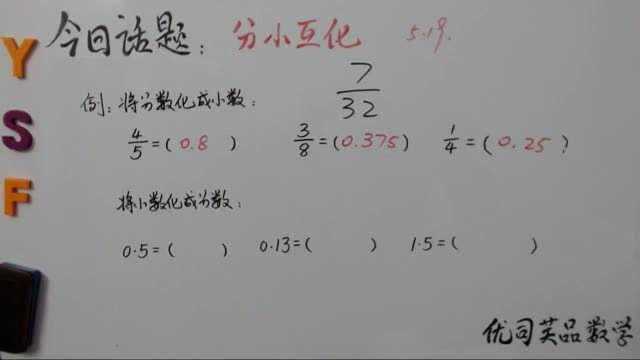 今日话题：分小互化 5.19.
7/32
例：将分数化成小数：
4/5=(0.8) 3/8=(0.375) 1/4=(0.25)
将小数化成分数：
0.5=( ) 0.13=( ) 1.5=( )
优司芙品数学
Y
S
F